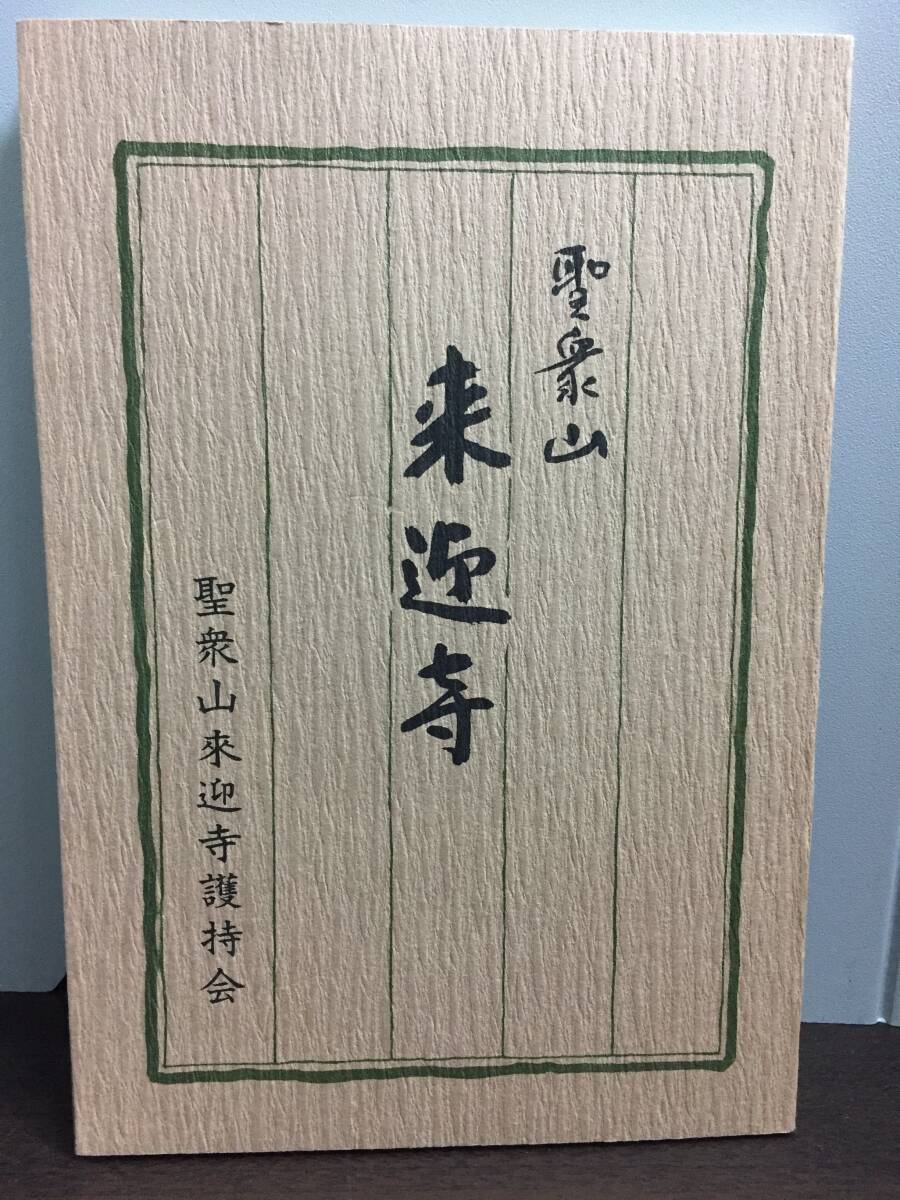 聖衆山
来迎寺
聖衆山來迎寺護持会